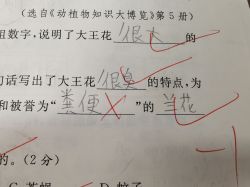 （选自《动植物知识大博览》第5册）
组数字，说明了大王花 很大 的
句话写出了大王花 很臭 的特点，为
和被誉为“ 粪便 ”的 兰花
的。（2分）
-1